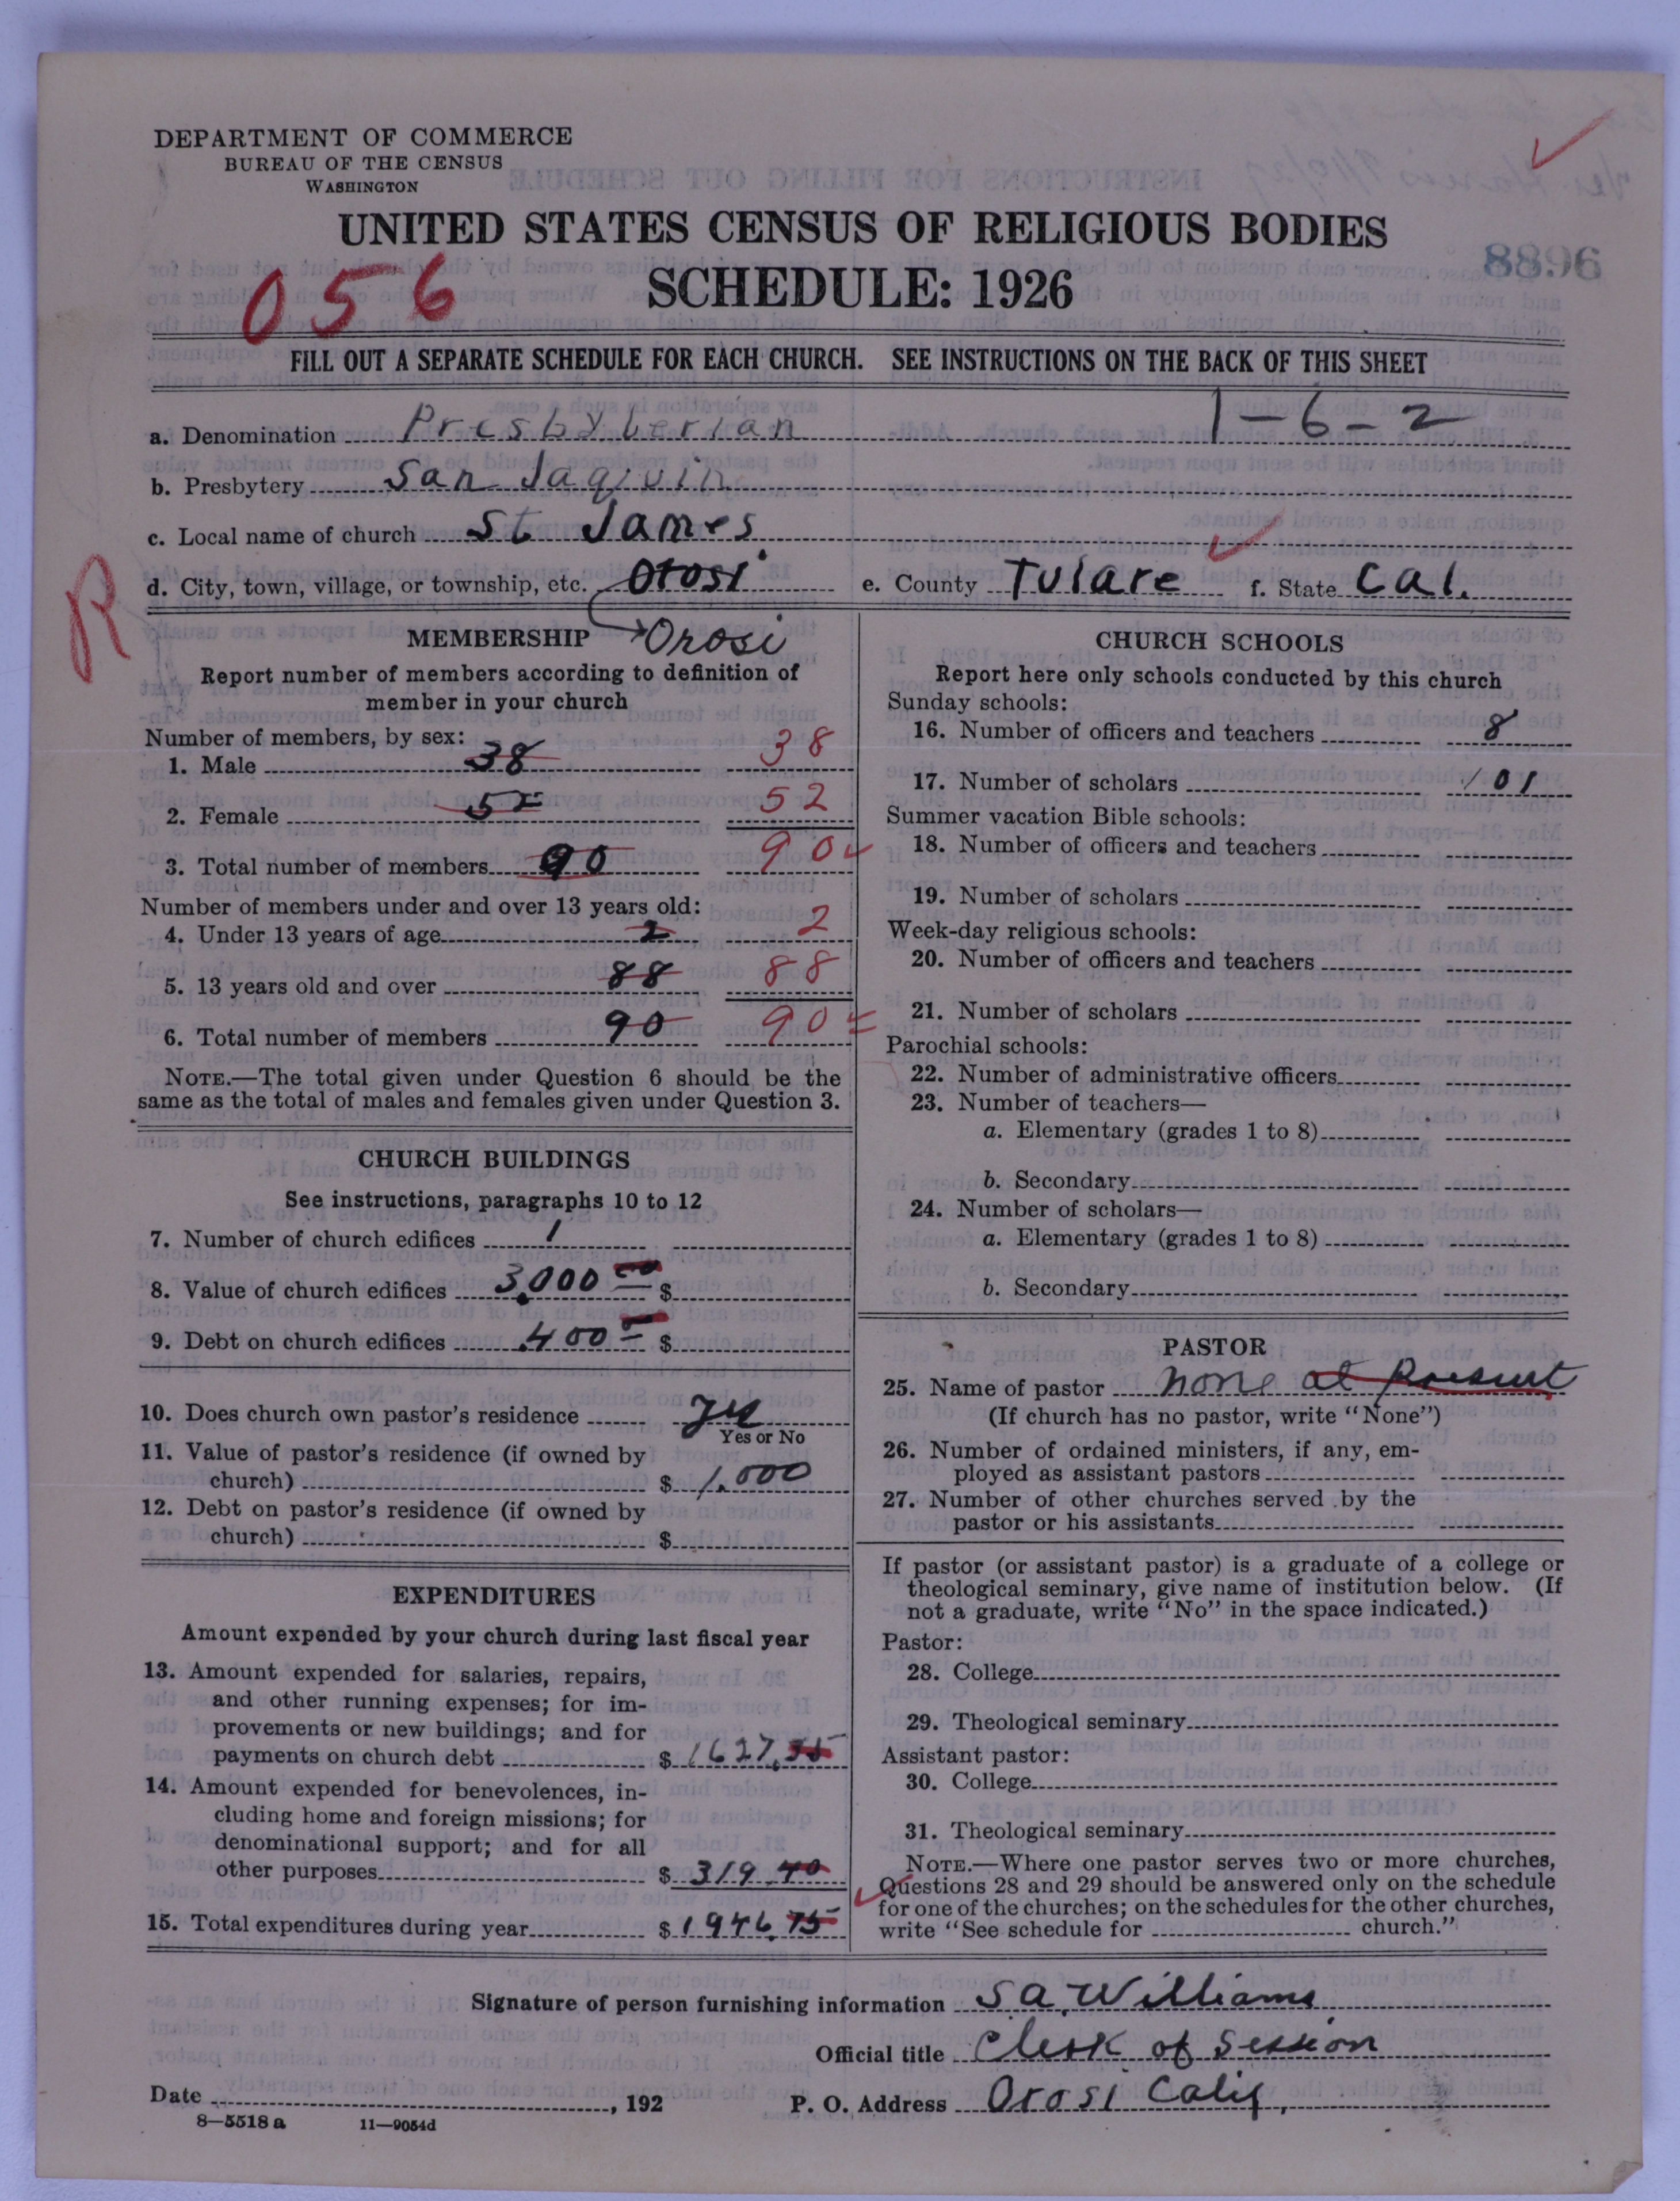 DEPARTMENT OF COMMERCE
BUREAU OF THE CENSUS
WASHINGTON
UNITED STATES CENSUS OF RELIGIOUS BODIES
8896
056 SCHEDULE: 1926
FILL OUT A SEPARATE SCHEDULE FOR EACH CHURCH. SEE INSTRUCTIONS ON THE BACK OF THIS SHEET
a. Denomination Presbyterian 1-6-2
b. Presbytery San Jaqiuin
c. Local name of church St James
R
d. City, town, village, or township, etc. Otosi e. County Tulare f. State Cal.
Orosi
MEMBERSHIP
Report number of members according to definition of
member in your church
Number of members, by sex:
1. Male 38 38
2. Female 52 52
3. Total number of members 90 90
Number of members under and over 13 years old:
4. Under 13 years of age 2 2
5. 13 years old and over 88 88
6. Total number of members 90 90
NOTE.—The total given under Question 6 should be the
same as the total of males and females given under Question 3.
CHURCH BUILDINGS
See instructions, paragraphs 10 to 12
7. Number of church edifices 1
8. Value of church edifices 3,000 00 $
9. Debt on church edifices 400 $
10. Does church own pastor's residence Yes
Yes or No
11. Value of pastor's residence (if owned by
church) $ 1,000
12. Debt on pastor's residence (if owned by
church) $
EXPENDITURES
Amount expended by your church during last fiscal year
13. Amount expended for salaries, repairs,
and other running expenses; for im-
provements or new buildings; and for
payments on church debt $ 1627.35
14. Amount expended for benevolences, in-
cluding home and foreign missions; for
denominational support; and for all
other purposes $ 319.40
15. Total expenditures during year $ 1946.75
CHURCH SCHOOLS
Report here only schools conducted by this church
Sunday schools:
16. Number of officers and teachers 8
17. Number of scholars 101
Summer vacation Bible schools:
18. Number of officers and teachers
19. Number of scholars
Week-day religious schools:
20. Number of officers and teachers
21. Number of scholars
Parochial schools:
22. Number of administrative officers
23. Number of teachers—
a. Elementary (grades 1 to 8)
b. Secondary
24. Number of scholars—
a. Elementary (grades 1 to 8)
b. Secondary
PASTOR
25. Name of pastor none at Present
(If church has no pastor, write "None")
26. Number of ordained ministers, if any, em-
ployed as assistant pastors
27. Number of other churches served by the
pastor or his assistants
If pastor (or assistant pastor) is a graduate of a college or
theological seminary, give name of institution below. (If
not a graduate, write "No" in the space indicated.)
Pastor:
28. College
29. Theological seminary
Assistant pastor:
30. College
31. Theological seminary
NOTE.—Where one pastor serves two or more churches,
Questions 28 and 29 should be answered only on the schedule
for one of the churches; on the schedules for the other churches,
write "See schedule for church."
Signature of person furnishing information S.A. Williams
Official title Clerk of Session
Date , 192 P. O. Address Orosi Calif,
8—5518 a 11—9054d